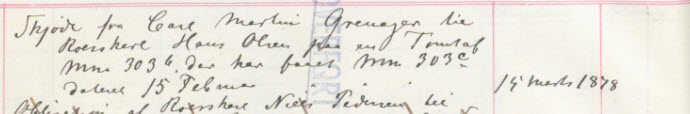 Skjøde fra Carl Martin Grenager til
Roerskarl Hans Olsen paa en Tomt af
Mnr 303b, der har faaet Mnr 303c
dateret 15 Februar
15 Marts 1878
Obligation af Roerskarl Niels Pedersen til